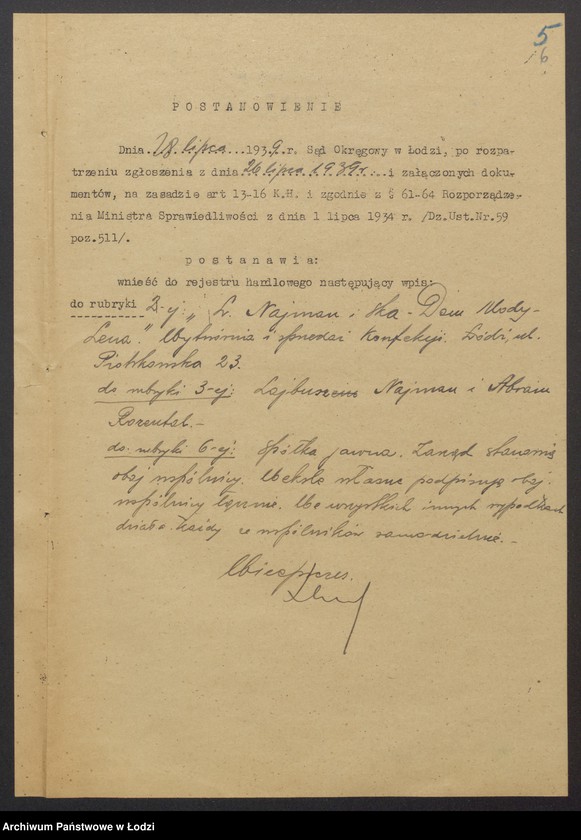 5
6
POSTANOWIENIE
Dnia 28 lipca 1939. r. Sąd Okręgowy w Łodzi, po rozpa-
trzeniu zgłoszenia z dnia 26 lipca 1939 r. i załączonych doku-
mentów, na zasadzie art 13-16 K.H. i zgodnie z § 61-64 Rozporządze-
nia Ministra Sprawiedliwości z dnia 1 lipca 1934 r. /Dz.Ust.Nr.59
poz.511/.
postanawia:
wnieść do rejestru handlowego następujący wpis:
do rubryki 2-ej: "L. Najman i Ska - Dom Mody-
Lena." Wytwórnia i sprzedaż konfekcji. Łódź, ul.
Piotrkowska 23.
do rubryki 3-ej: Najman i Abram
Rozental.-
do rubryki 6-ej: Spółka jawna. Zarząd stanowią
obaj wspólnicy. Weksle własne podpisują obaj
wspólnicy łącznie. We wszystkich innych wypadkach
działa każdy ze wspólników samodzielnie.-
Wiceprezes.
Archiwum Państwowe w Łodzi